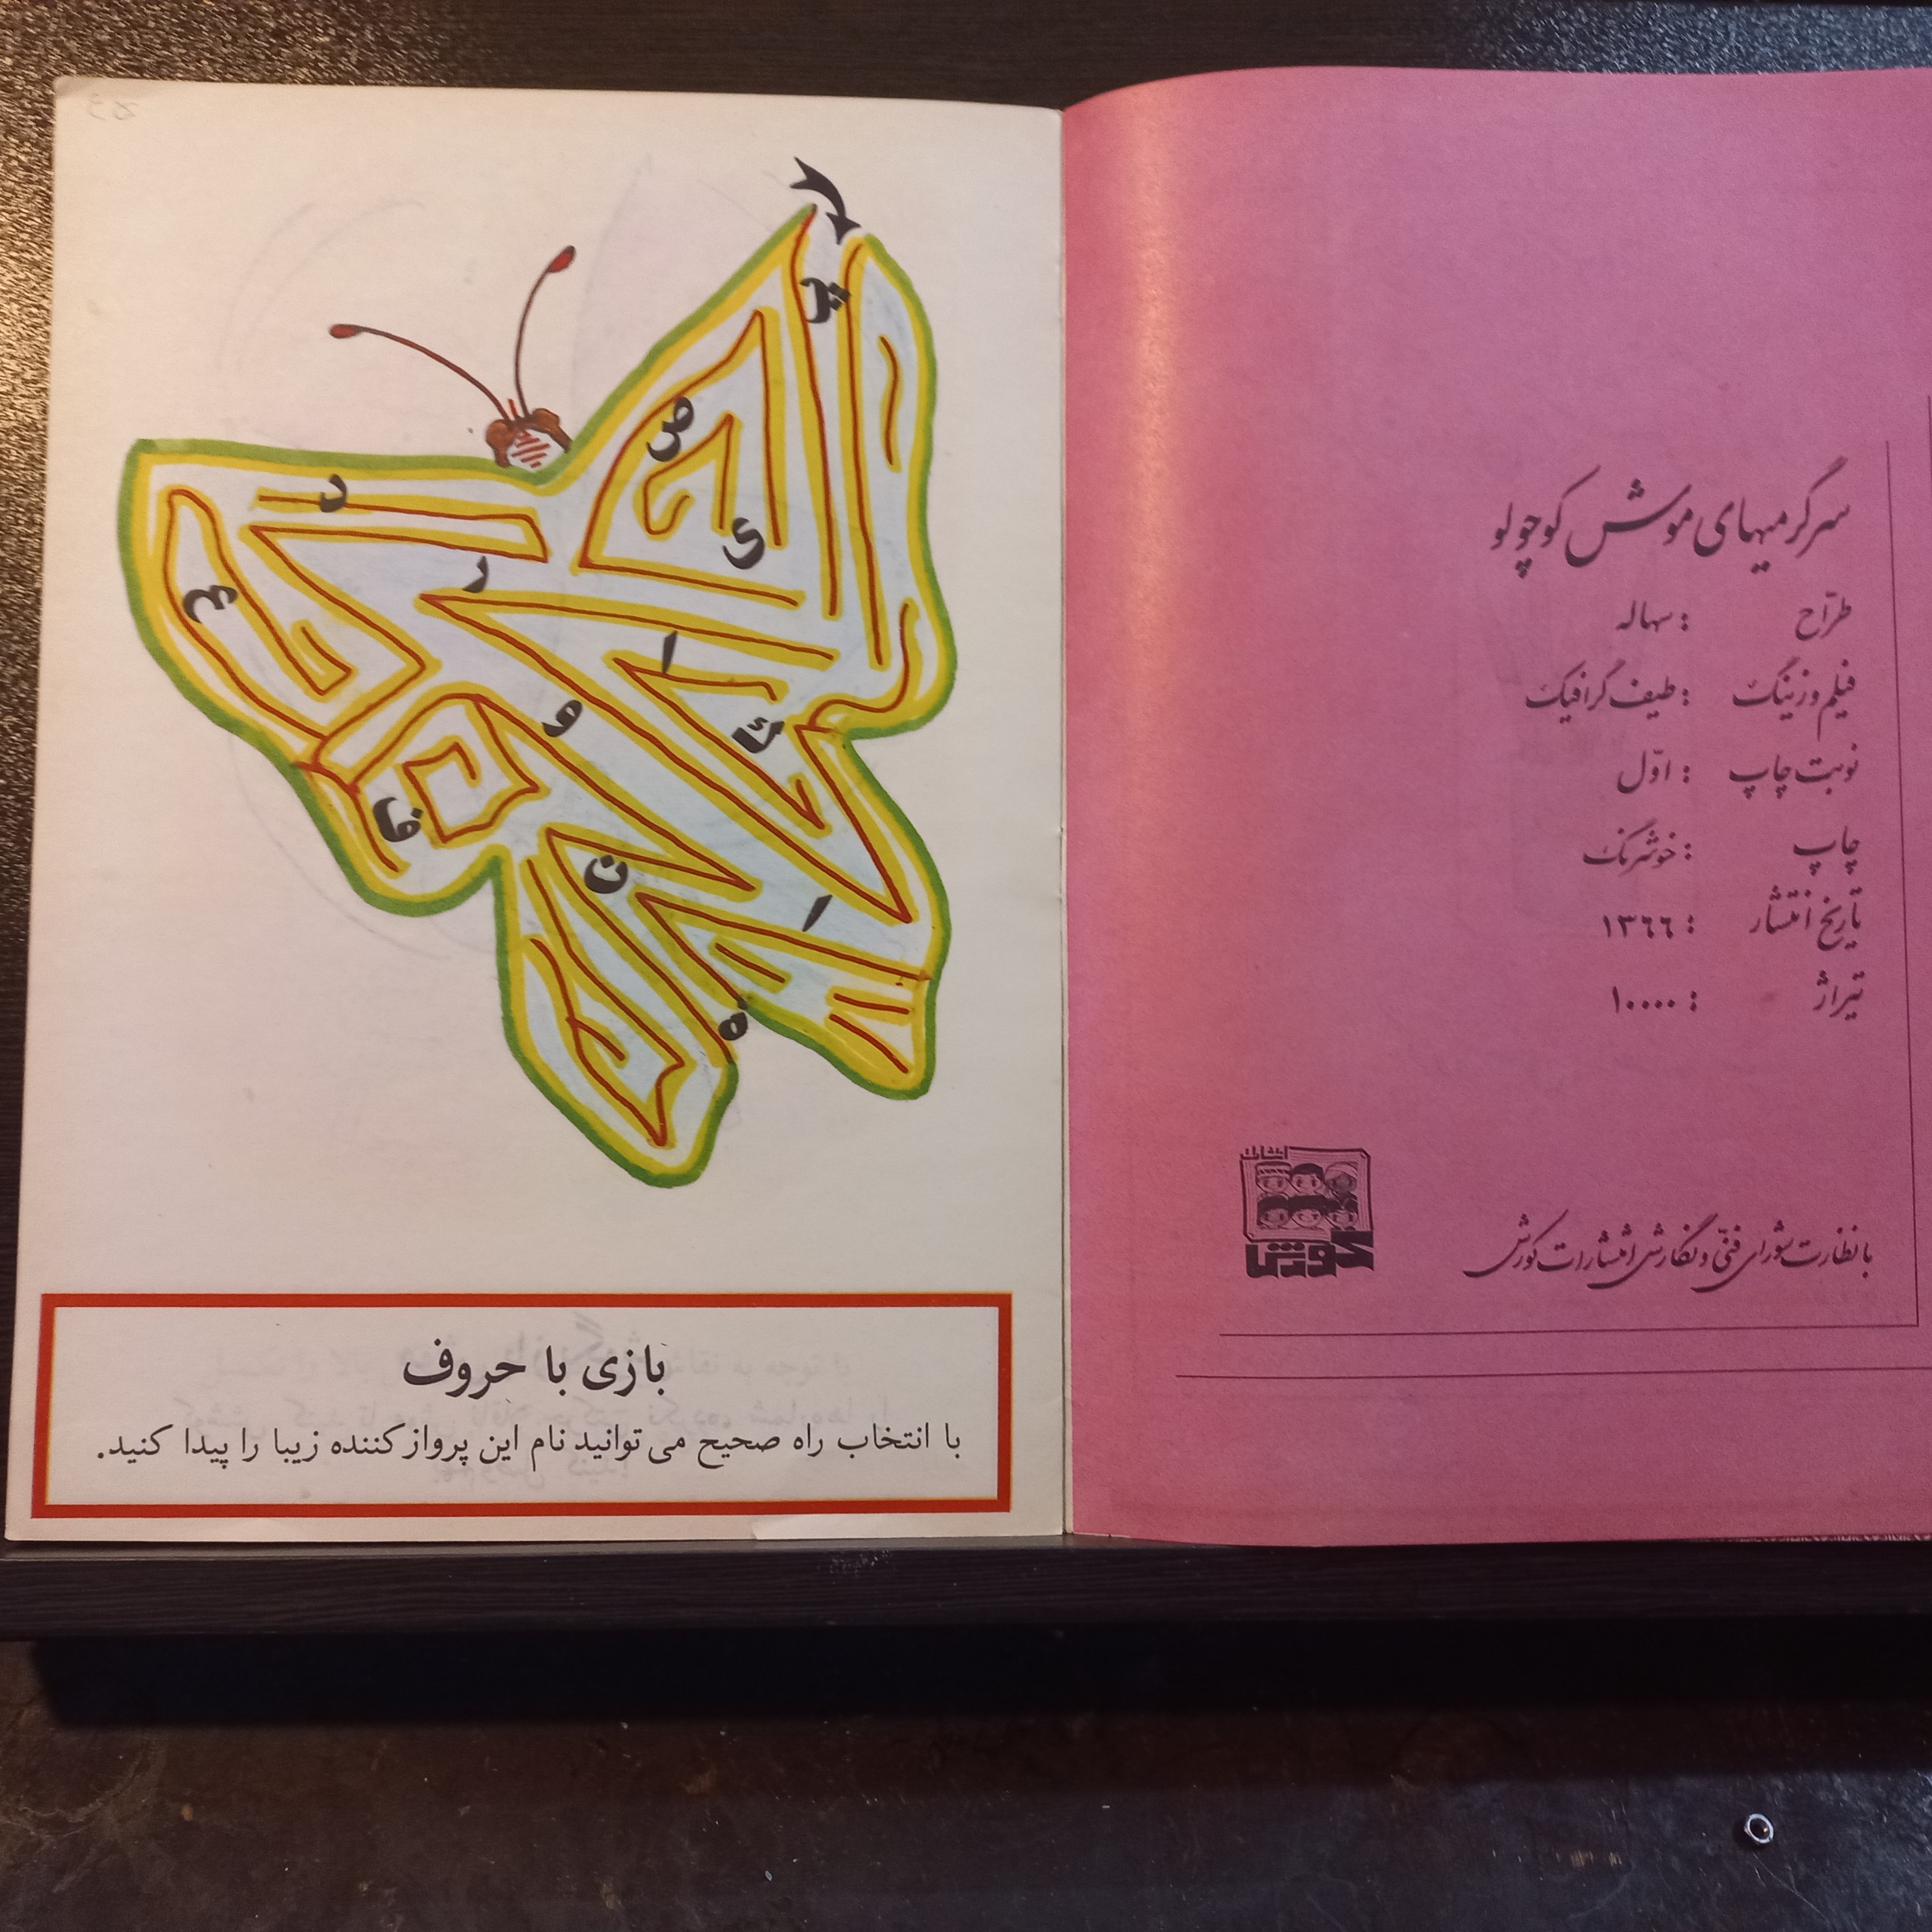 سرگرمیهای موش کوچولو
طرّاح : سهاله
فیلم و زینگ : طیف گرافیک
نوبت چاپ : اوّل
چاپ : خوشرنگ
تاریخ انتشار : ۱۳۶۶
تیراژ : ۱۰۰۰۰
با نظارت شورای فنّی و نگارشی انتشارات کورش
انتشارات
کورش
پ
ص
ی
د
ر
ع
ا
و
ئ
ف
ت
ا
ه
بازی با حروف
با انتخاب راه صحیح می توانید نام این پروازکننده زیبا را پیدا کنید.